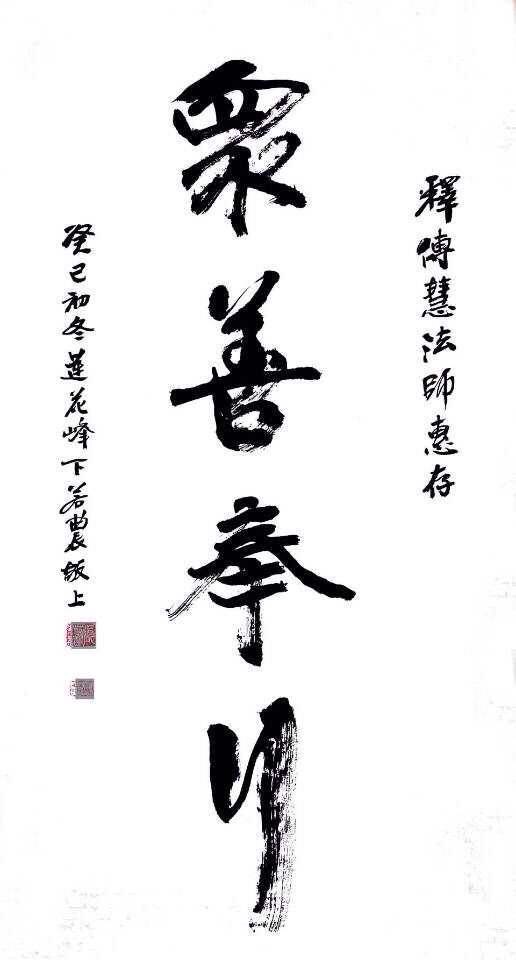 釋傳慧法師惠存
眾善奉行
癸巳初冬蓮花峰下若農敬上